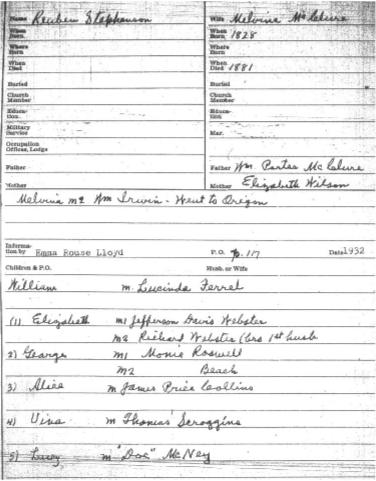 Name Reuben Stephenson Wife Melvina McClure
When Born When Born 1828
Where Born Where Born
When Died When Died 1881
Buried Buried
Church Member Church Member
Education. Education
Military Service Mar.
Occupation Offices, Lodge
Father Father Wm Porter McClure
Mother Mother Elizabeth Wilson
Melvina m2 Wm Irwin - Went to Oregon
Information by Emma Rouse Lloyd P.O. p. 117 Date 1932
Children & P.O. Husb. or Wife
William m. Lucinda Ferrel
(1) Elizabeth m1 Jefferson Davis Webster
m2 Richard Webster (bro 1st husb
2) George m1 Monie Roswell
m2 Beach
3) Alice m James Price Collins
4) Vina m Thomas Scroggins
5) Lucy m "Doc" McNey